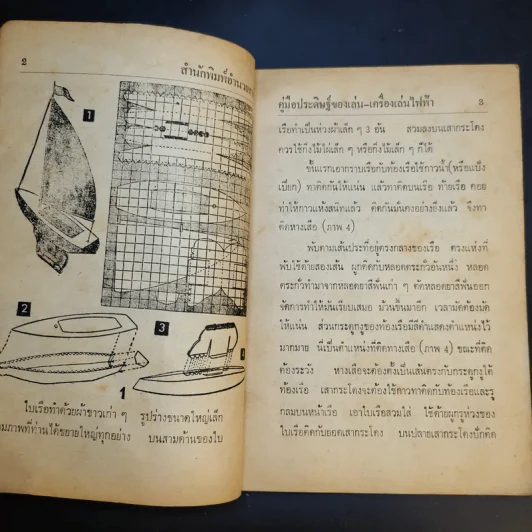 2
สำนักพิมพ์อำนวย
1
2
3
4
1
ใบเรือทำด้วยผ้าขาวเก่า ๆ รูปร่างขนาดใหญ่เล็ก
ภาพที่ท่านได้ขยายใหญ่ทุกอย่าง บนสามด้านของใบ
คู่มือประดิษฐ์ของเล่น-เครื่องเล่นไฟฟ้า 3
เรือทำเป็นห่วงผ้าเล็ก ๆ 3 อัน สวมลงบนเสากระโดง
ควรใช้กิ่งไม้ไผ่เล็ก ๆ หรือกิ่งไม้เล็ก ๆ ก็ได้
ขั้นแรกเอากราบเรือกับท้องเรือใช้กาวน้ำ(หรือแป้ง
เปียก) ทาติดกันให้แน่น แล้วทาติดบนเรือ ท้ายเรือ คอย
ทำให้กาวแห้งสนิทแล้ว ติดกันมั่นคงอย่างยิ่งแล้ว จึงทา
ติดหางเสือ (ภาพ 4)
พับตามเส้นประที่อยู่ตรงกลางของเรือ ตรงแห่งที่
พับใช้ด้ายสองเส้น ผูกติดกับหลอดตะกั่วอันหนึ่ง หลอด
ตะกั่วทำมาจากหลอดยาสีฟันเก่า ๆ ตัดหลอดยาสีฟันออก
จัดการทำให้มันเรียบเสมอ ม้วนขึ้นมาอีก เวลามัดต้องมัด
ให้แน่น ส่วนกระดูกงูของท้องเรือมีสีดำแสดงตำแหน่งไว้
มากมาย นี่เป็นตำแหน่งที่ติดทางเสือ (ภาพ 4) ขณะที่ติด
ต้องระวัง หางเสือจะต้องตั้งขึ้นเส้นตรงกับกระดูกงูใต้
ท้องเรือ เสากระโดงจะต้องใช้กาวทาติดกับท้องเรือและรู
กลมบนหน้าเรือ เอาใบเรือสวมใส่ ใช้ด้ายผูกรูห่วงของ
ใบเรือติดกับยอดเสากระโดง บนปลายเสากระโดงปักติด